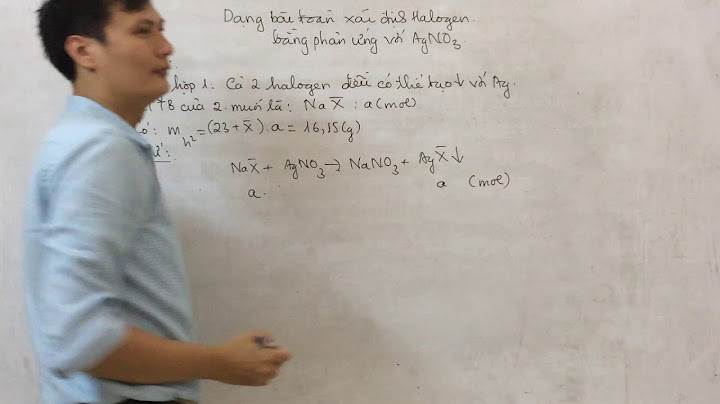 Dạng bài toán xác định Halogen
bằng phản ứng với AgNO3
hợp 1: Cả 2 halogen đều có thể tạo ↓ với Ag.
TB của 2 muối là: NaX̄ : a (mol)
có: m h² = (23 + X̄).a = 16,15 (g)
NaX̄ + AgNO3 → NaNO3 + AgX̄ ↓
a. a (mol)